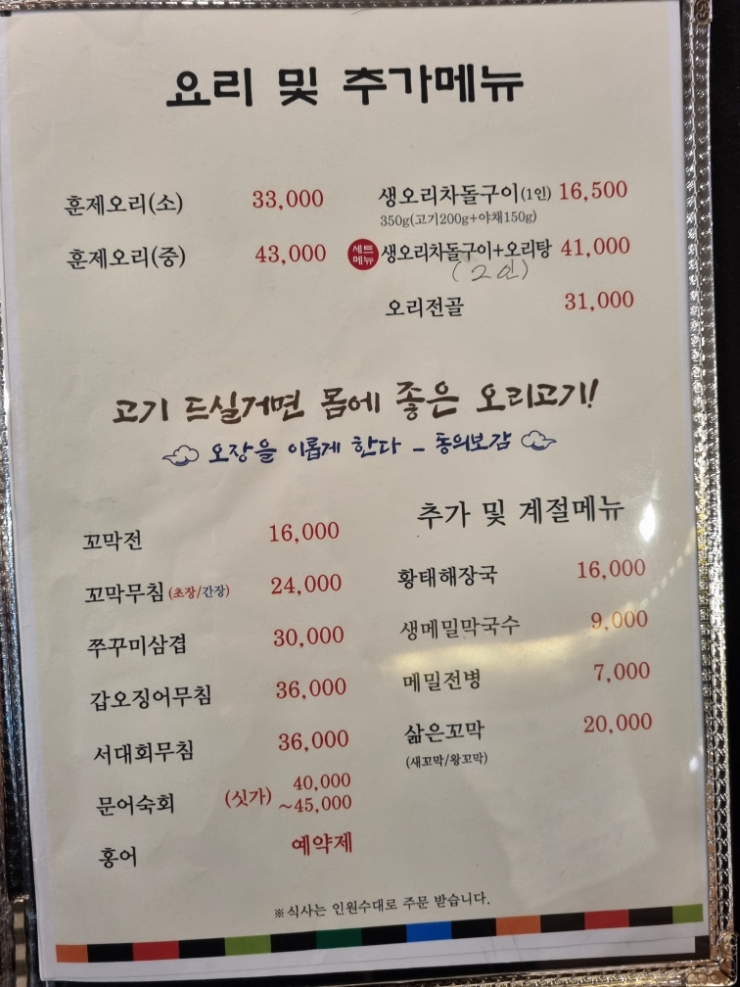 요리 및 추가메뉴
훈제오리(소) 33,000
훈제오리(중) 43,000
생오리차돌구이(1인) 16,500
350g(고기200g+야채150g)
세트메뉴 생오리차돌구이+오리탕 41,000
(2인)
오리전골 31,000
고기 드실거면 몸에 좋은 오리고기!
오장을 이롭게 한다 - 동의보감
꼬막전 16,000
꼬막무침(초장/간장) 24,000
쭈꾸미삼겹 30,000
갑오징어무침 36,000
서대회무침 36,000
문어숙회 (싯가) 40,000
~45,000
홍어 예약제
추가 및 계절메뉴
황태해장국 16,000
생메밀막국수 9,000
메밀전병 7,000
삶은꼬막 20,000
(새꼬막/왕꼬막)
※식사는 인원수대로 주문 받습니다.